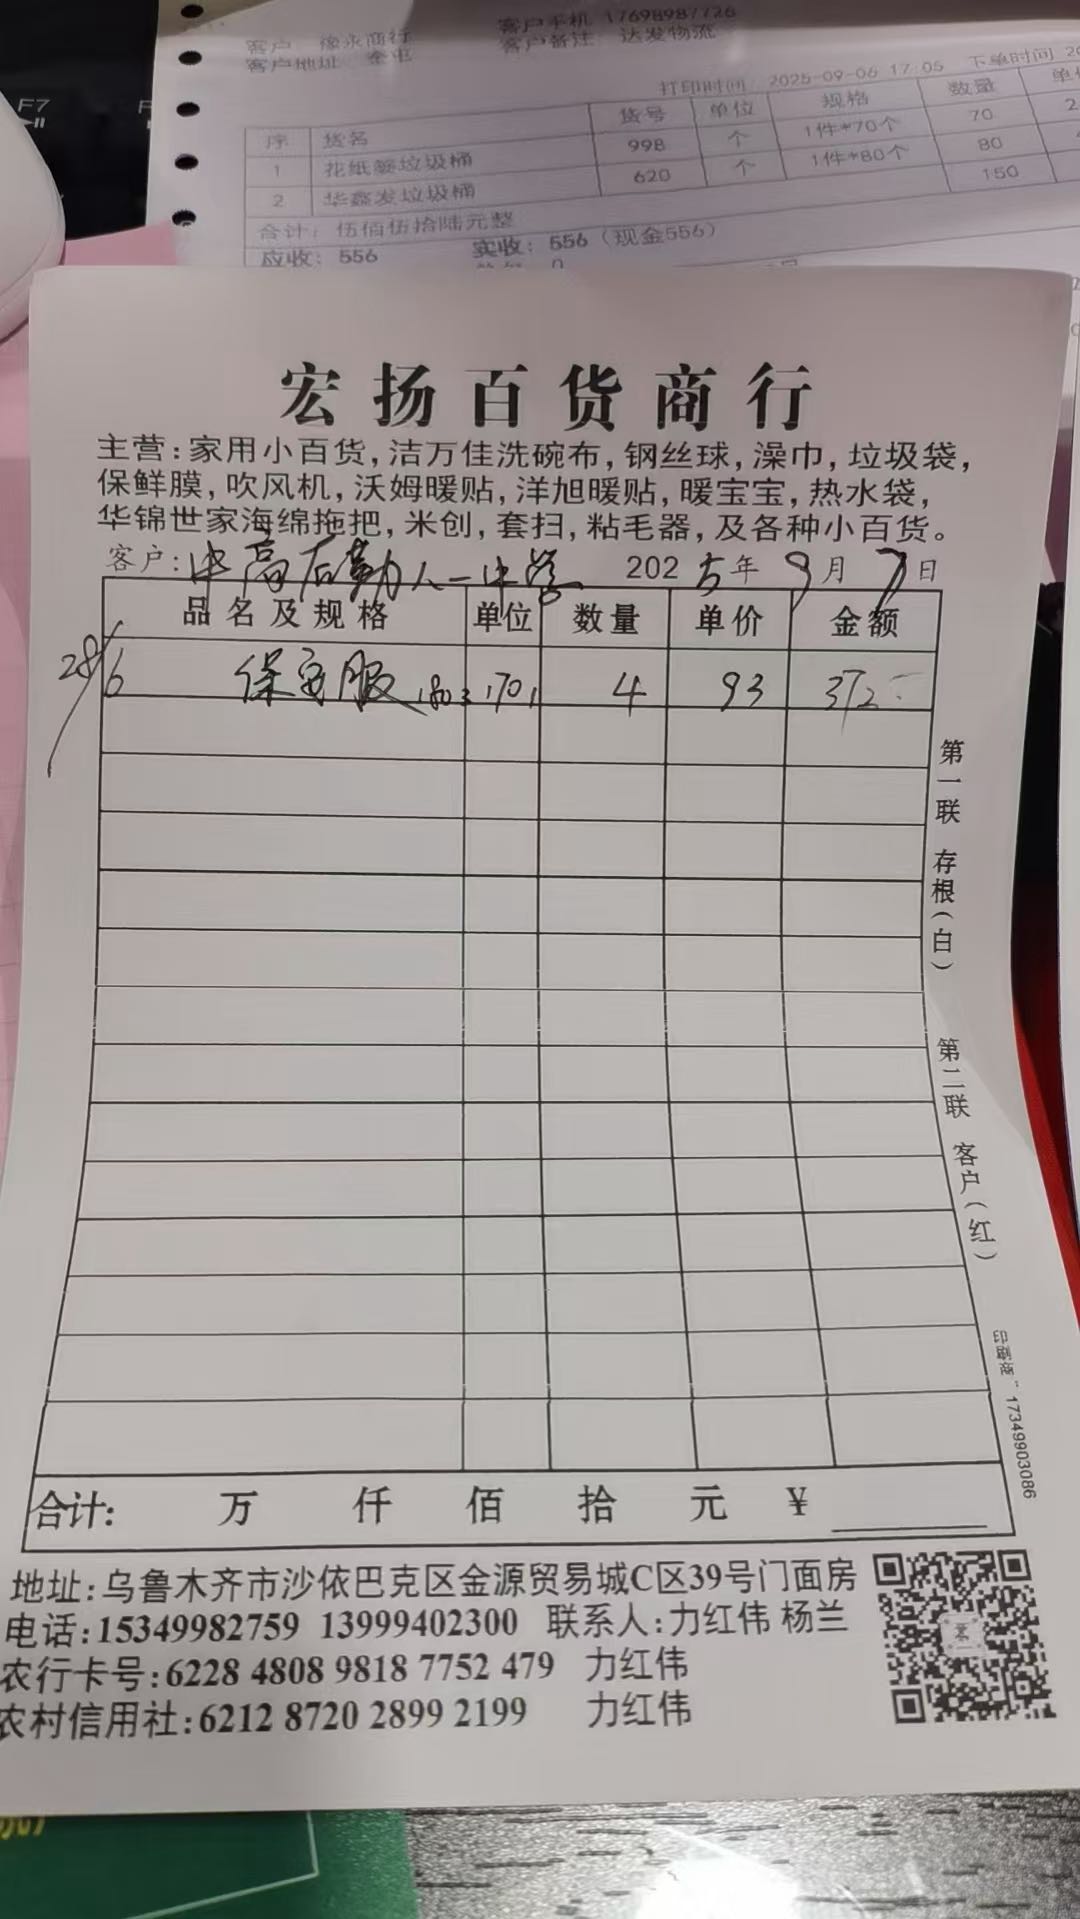 F7
客户 豫永商行
客户手机 17698987726
客户地址 奎屯
客户备注: 达发物流
打印时间: 2025-09-06 17:05 下单时间 20
序 货名 货号 单位 规格 数量 单
1 花纸篓垃圾桶 998 个 1件*70个 70 2
2 华鑫发垃圾桶 620 个 1件*80个 80
150
合计: 伍佰伍拾陆元整
应收: 556 实收: 556 (现金556)
宏扬百货商行
主营:家用小百货,洁万佳洗碗布,钢丝球,澡巾,垃圾袋,
保鲜膜,吹风机,沃姆暖贴,洋旭暖贴,暖宝宝,热水袋,
华锦世家海绵拖把,米创,套扫,粘毛器,及各种小百货。
客户: 高后勤人一中 2025年9月7日
品名及规格 单位 数量 单价 金额
28/6 保安服 180 3 170 1 4 93 372
第一联 存根(白)
第二联 客户(红)
印刷商: 17349903086
合计: 万 仟 佰 拾 元 ¥
地址:乌鲁木齐市沙依巴克区金源贸易城C区39号门面房
电话:15349982759 13999402300 联系人:力红伟 杨兰
农行卡号:6228 4808 9818 7752 479 力红伟
农村信用社:6212 8720 2899 2199 力红伟